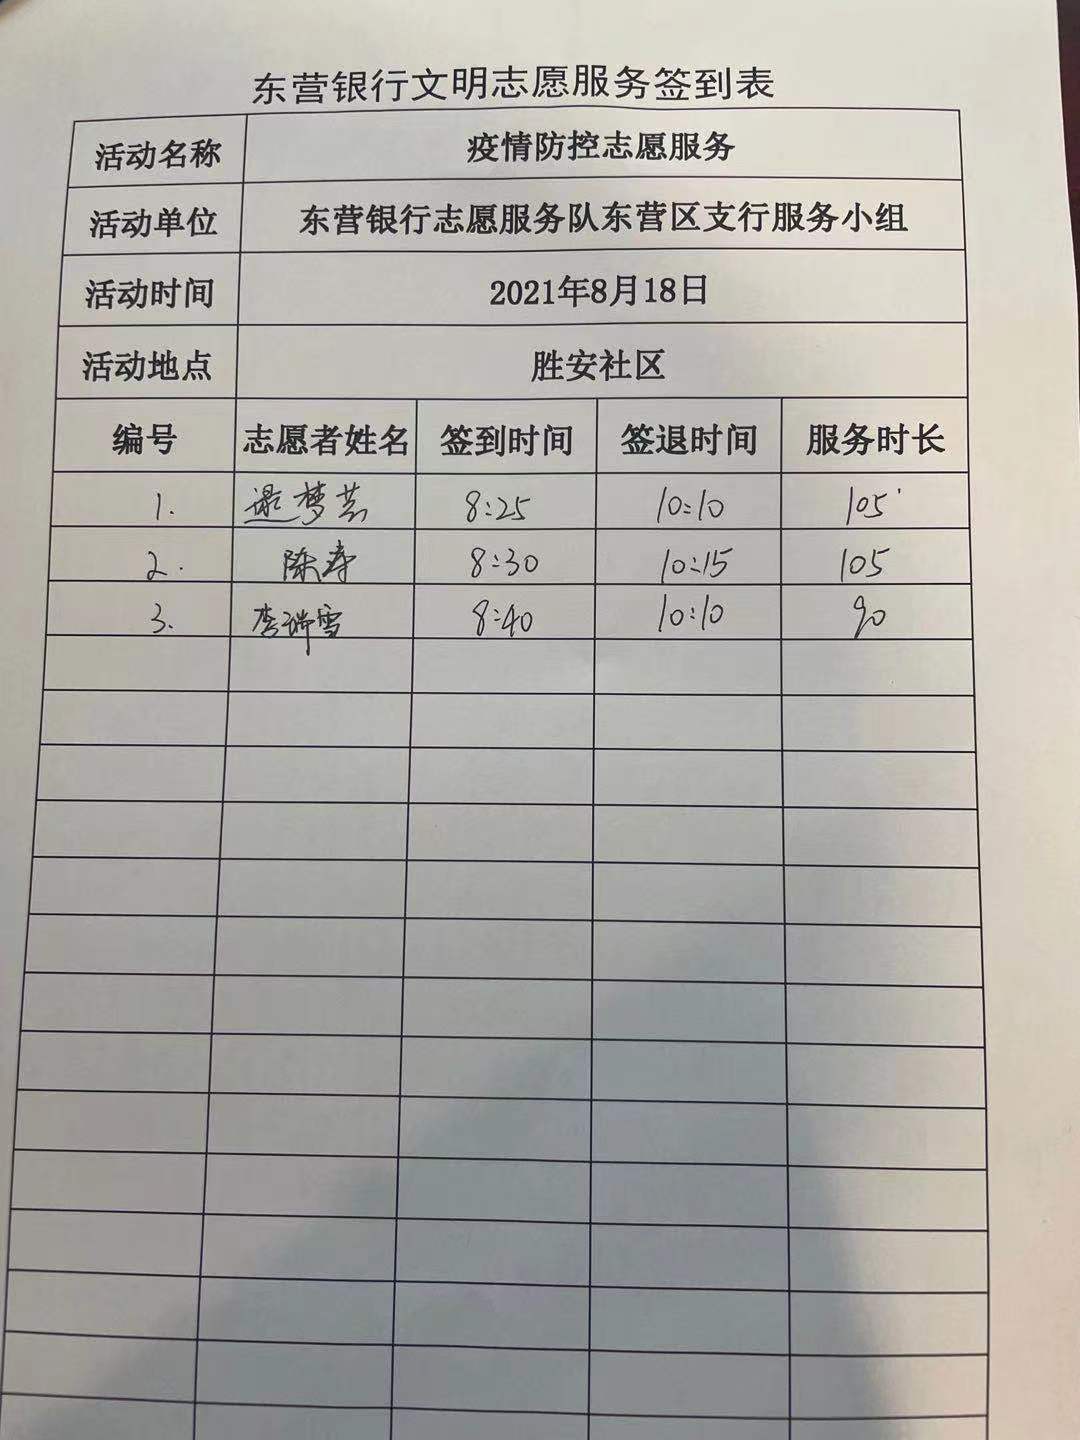 东营银行文明志愿服务签到表
活动名称 疫情防控志愿服务
活动单位 东营银行志愿服务队东营区支行服务小组
活动时间 2021年8月18日
活动地点 胜安社区
编号 志愿者姓名 签到时间 签退时间 服务时长
1. 梦芸 8:25 10:10 105'
2. 陈寿 8:30 10:15 105
3. 李瑞雪 8:40 10:10 90